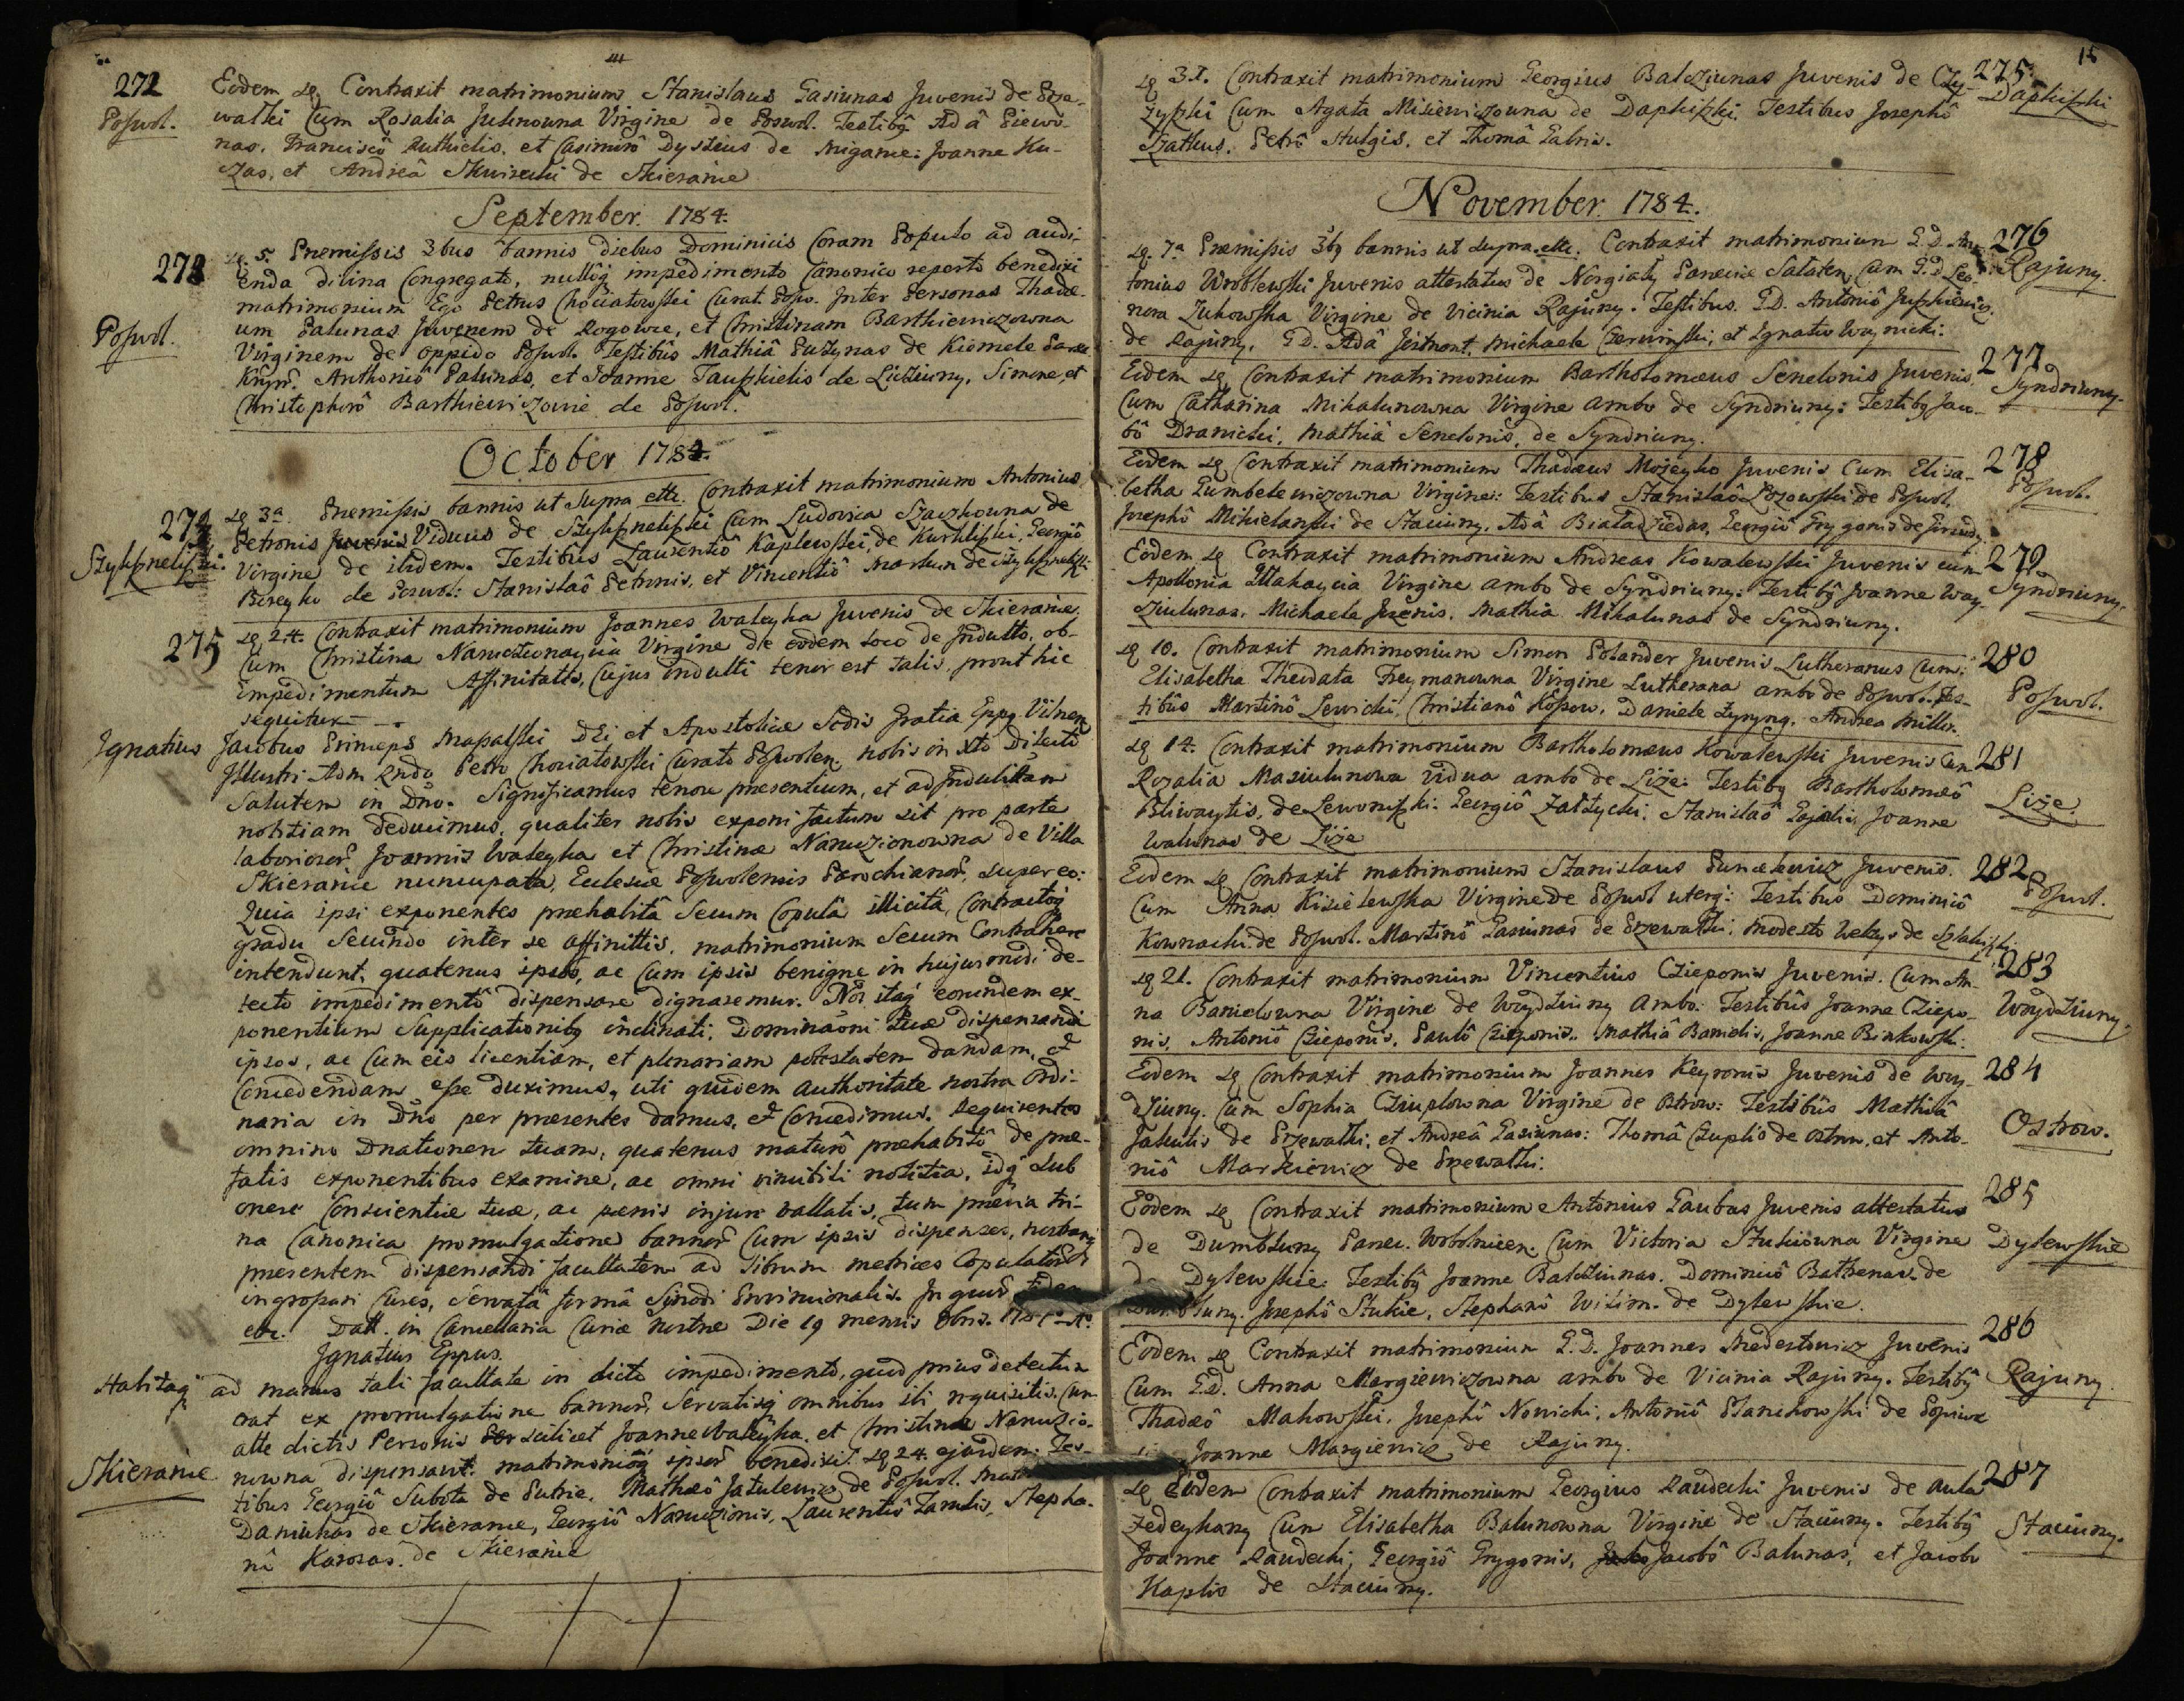 272
Eodem die Contraxit matrimonium Stanislaus Gasiunas Juvenis de Prze-
Poswol.
walki Cum Rosalia Julinowna Virgine de Poswol. Testibg Adâ Piewo-
nas, Franciscô et Casimirô de Migance: Joanne Ku-
czas, et Andreâ de Skieranie
September. 1784.
273
5. Premissis 3bus bannis diebus Dominicis Coram Populo ad audi-
enda divina Congregato, nullôq impedimento Canonico reperto benedixi
matrimonium Ego Petrus Chociatowski Curat. Posw. Inter Personas Thadæ-
Poswol.
um Palunas Juvenem de Rogowce, et Christinam Barthiewiczowna
Virginem de Oppido Poswol. Testibûs Mathiâ Puzynas de Kiemele
Anthoniô Palunas, et Joanne Tauszkielis de Liciuny, Simone, et
Christophorô Barthiewiczowie de Poswol.
October 1784.
274
3a. Premissis bannis ut Supra ette. Contraxit matrimonium Antonius
Petronis Juvenis Viduus de Szylisznelizki Cum Ludovica Szaczkowna de
Szylisznelizki.
Virgine de ibidem. Testibus Laurentiô Kaplewski, de Kurkliszki, Georgiô
Bireyko de Poswol: Stanislaô Petronis, et Vincentiô Markun de Szyliszneliszki.
275
24. Contraxit matrimonium Joannes Waleyka Juvenis de Skieranie
Cum Christina Virgine de eodem Loco de Indulto, ob-
impedimentum Affinitatis, Cujus indulti tenor est talis, prout hic
sequitur
Ignatius Jacobus Princeps Massalski DEi et Apostolicæ Sedis Gratia Eppg Vilnen
Illustri Adm Rndo Petro Chociatowski Curato Poswolen. nobis in xto Dilecto
Salutem in Dno. Significamus tenore presentium, et ad Indubitâm
notitiam deducimus, qualiter nobis exponi factum sit pro parte
laboriosor. Joannis Waleyka et Christinæ Narwizionowna de Villa
Skieranie nuncupata, Ecclesiæ Poswolensis Parochianor. super eo:
Quia ipsi exponentes prehabitâ Secum Copulâ illicitâ, Contractôq
gradu Secundo inter se affinittis. matrimonium Secum Contrahere
intendunt, quatenus ipsos, ac Cum ipsis benigne in hujusmodi de-
tecto impedimentô dispensare dignaremur. Nos itaq eorundem ex-
ponentium Supplicationibg inclinati; Dominaoni tuæ dispensandi
ipsos, ac Cum eis licentiam, et plenariam potestatem dandam, et
Concedendam esse duximus, uti quidem authoritate nostra Ordi-
naria in Dno per presentes damus, et Concedimus. Requirentes
omnino Dnationem tuam, quatenus maturô prehabitô de pre-
fatis exponentibus examine, ac omni notitia, idq sub
onere Conscientiæ tuæ, ac pænis injure vallatis, tum previa tri-
na Canonica promulgatione bannor. Cum ipsis dispenses,
presentem dispensandi facultatem ad librum metrices Copulator.
ingrossari Cures, Servatâ formâ Synodi Provincionalis. In quor. fidem
ette. Datt. in Cancellaria Curiæ nostræ Die 19 mensis 8bris.
Ignatius Eppus.
Habitaq ad manus tali facultate in dicto impedimento, quod prius detectum
erat ex promulgatione bannor. Servatisq omnibus ibi requisitis. Cum
atte dictis Personis scilicet Joanne Waleyka, et Christina
Skieranie
nowna dispensavit. matrimoniôq ipsor. benedixit 24. ejusdem. Tes-
tibus Georgiô Subota de Putrie, Mathæô Jatulewicz de Poswol.
Daniukas de Skieranie, Georgiô Laurentiô Stepha-
nô Karosas. de Skieranie

15
31. Contraxit matrimonium Georgius Balcziunas Juvenis de Czy-
275.
Dapkiszki
zyszki Cum Agata Misiewiczowna de Dapkiszki. Testibus Josephô
Szatkus. Petrô Stulgis, et Thomâ Gabris.
November. 1784.
7a Præmissis 3bg bannis ut supra ette. Contraxit matrimonium G.D. An-
276
Rajuny.
tonius Wroblewski Juvenis attestatus de Norgialy Paræciæ Salaten. Cum G.D. Leo-
nora Zukowska Virgine de vicinia Rajuny. Testibus. G.D. Antoniô
de Rajuny, G.D. Adâ Michaele Czerwinski, et Ignatio Woynicki.
277
Syndriuny.
Eodem Contraxit matrimonium Bartholomæus Senelonis Juvenis,
Cum Catharina Mikalunowna Virgine ambo de Syndriuny: Testibg Jaco-
bô Dranicki, Mathiâ Senelonis, de Syndriuny.
278
Poswol.
Eodem Contraxit matrimonium Thadæus Mojeyko Juvenis Cum Elisa-
betha Gumbelewiczowna Virgine: Testibus Stanislaô de Poswol,
Josephô Mikielanski de Staciuny, Adâ Bialadziedas, Georgiô Grygonis de
279
Syndriuny.
Eodem Contraxit matrimonium Andreas Kowalewski Juvenis cum
Apollonia Virgine ambo de Syndriuny: Testibg Joanne Way-
Michaele Mathia Mikalunas de Syndriuny.
280
Poswol.
10. Contraxit matrimonium Simon Polander Juvenis Lutheranus Cum
Elisabetha Theodata Freymanowna Virgine Lutherana ambo de Poswol. Tes-
tibûs Martinô Lewicki, Christianô Kossow, Daniele Andrea Miller.
281
Lize.
14. Contraxit matrimonium Bartholomæus Kowalewski Juvenis Cum
Rozalia Masiulunowa vidua ambo de Lize: Testibg Bartholomæô
Bliwaytis, de Lewoniszki: Georgiô Stanislaô Joanne
Walunas de Lize
282
Poswol.
Eodem Contraxit matrimonium Stanislaus Juvenis.
Cum Anna Kisielewska Virgine de Poswol uterq: Testibus Dominicô
Kownacki de Poswol. Martinô Gasiunas de Przewalki: Modesto
283
Woydziuny.
21. Contraxit matrimonium Vincentius Czieponis Juvenis. Cum An-
na Banielowna Virgine de Woydziuny ambo: Testibûs Joanne Cziepo-
nis, Antoniô Czieponis, Paulô Czieponis. Mathiâ Banielis, Joanne Binkowski.
284
Ostrow.
Eodem Contraxit matrimonium Joannes Keyronis Juvenis de Woy-
dziuny. Cum Sophia Cziuplowna Virgine de Ostrow: Testibûs Mathiâ
Jakutis de Przewalki, et Andreâ Gasiunas: Thomâ Czuplis de Ostrow, et Anto-
niô Markiewicz de Przewalki.
285
Dylewskie
Eodem Contraxit matrimonium Antonius Gaubas Juvenis attestatus
de Dumbluny Paræc. Wobolnicen. Cum Victoria Stukiowna Virgine
de Dylewskie: Testibg Joanne Balcziunas. Dominicô Bathenas de
Dumbluny. Josephô Stukie, Stephanô de Dylewskie.
286
Rajuny.
Eodem Contraxit matrimonium G.D. Joannes Juvenis
Cum G.D. Anna Margiewiczowna ambo de Vicinia Rajuny. Testibg
Thadæô Makowski, Josephô Nowicki, Antoniô de
Joanne Margiewicz de Rajuny.
287
Staciuny.
Eodem Contraxit matrimonium Georgius Raudecki Juvenis de Aula
Zedeykany Cum Elisabetha Balunowna Virgine de Staciuny. Testibg
Joanne Raudecki, Georgiô Grygonis, Jacobô Balunas, et Jacobo
Kaplis de Staciuny.